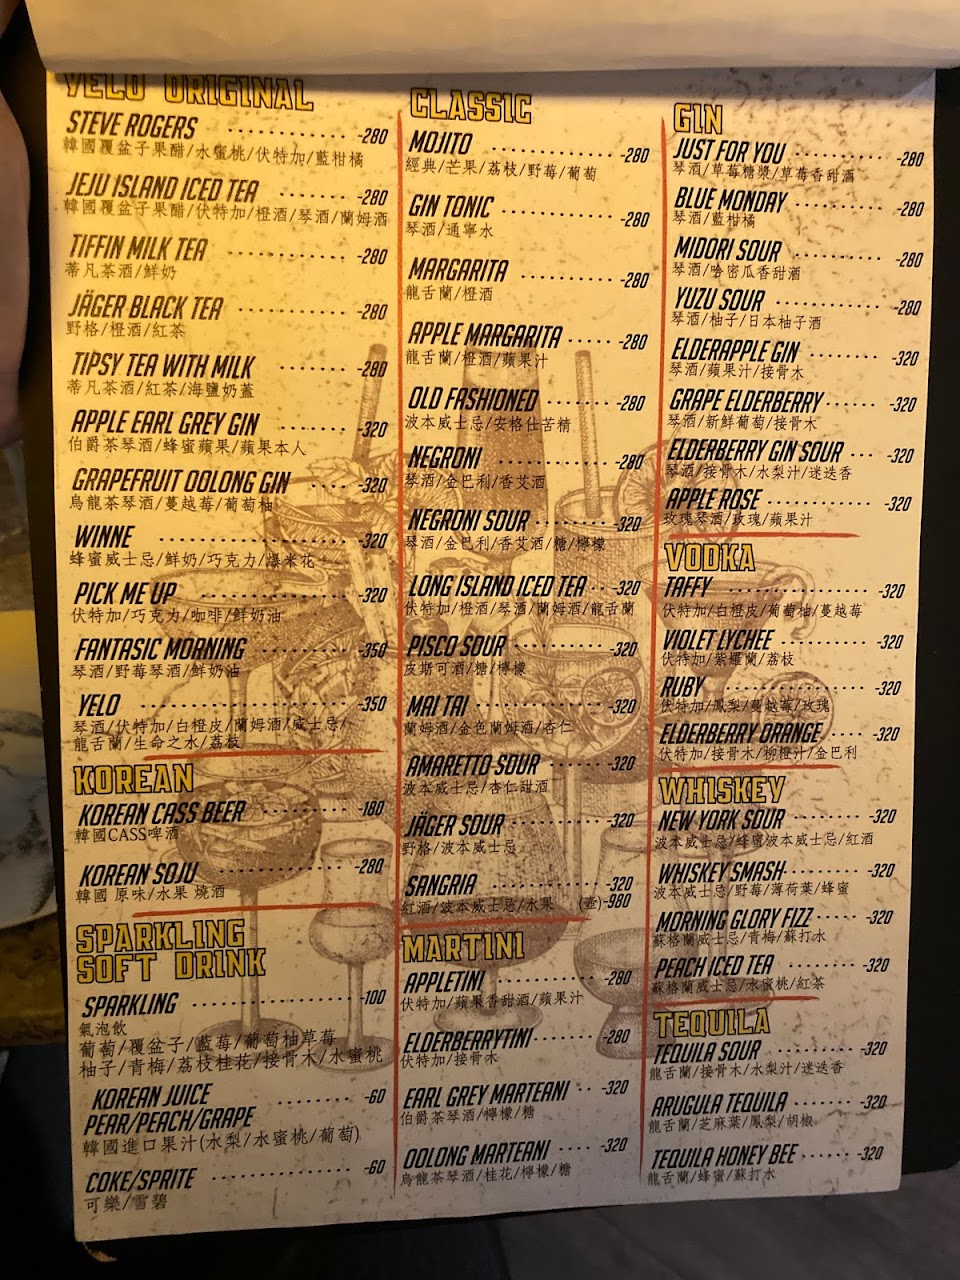 YELO ORIGINAL
STEVE ROGERS -280
韓國覆盆子果醋/水蜜桃/伏特加/藍柑橘
JEJU ISLAND ICED TEA -280
韓國覆盆子果醋/伏特加/橙酒/琴酒/蘭姆酒
TIFFIN MILK TEA -280
蒂凡茶酒/鮮奶
JÄGER BLACK TEA -280
野格/橙酒/紅茶
TIPSY TEA WITH MILK -280
蒂凡茶酒/紅茶/海鹽奶蓋
APPLE EARL GREY GIN -320
伯爵茶琴酒/蜂蜜蘋果/蘋果本人
GRAPEFRUIT OOLONG GIN -320
烏龍茶琴酒/蔓越莓/葡萄柚
WINNE -320
蜂蜜威士忌/鮮奶/巧克力/爆米花
PICK ME UP -320
伏特加/巧克力/咖啡/鮮奶油
FANTASIC MORNING -350
琴酒/野莓琴酒/鮮奶油
YELO -350
琴酒/伏特加/白橙皮/蘭姆酒/威士忌/
龍舌蘭/生命之水/荔枝
KOREAN
KOREAN CASS BEER -180
韓國CASS啤酒
KOREAN SOJU -280
韓國 原味/水果 燒酒
SPARKLING
SOFT DRINK
SPARKLING -100
氣泡飲
葡萄/覆盆子/藍莓/葡萄柚草莓
柚子/青梅/荔枝桂花/接骨木/水蜜桃
KOREAN JUICE -60
PEAR/PEACH/GRAPE
韓國進口果汁(水梨/水蜜桃/葡萄)
COKE/SPRITE -60
可樂/雪碧
CLASSIC
MOJITO -280
經典/芒果/荔枝/野莓/葡萄
GIN TONIC -280
琴酒/通寧水
MARGARITA -280
龍舌蘭/橙酒
APPLE MARGARITA -280
龍舌蘭/橙酒/蘋果汁
OLD FASHIONED -280
波本威士忌/安格仕苦精
NEGRONI -280
琴酒/金巴利/香艾酒
NEGRONI SOUR -320
琴酒/金巴利/香艾酒/糖/檸檬
LONG ISLAND ICED TEA -320
伏特加/橙酒/琴酒/蘭姆酒/龍舌蘭
PISCO SOUR -320
皮斯可酒/糖/檸檬
MAI TAI -320
蘭姆酒/金色蘭姆酒/杏仁
AMARETTO SOUR -320
波本威士忌/杏仁甜酒
JÄGER SOUR -320
野格/波本威士忌
SANGRIA -320
紅酒/波本威士忌/水果 (壺)-980
MARTINI
APPLETINI -280
伏特加/蘋果香甜酒/蘋果汁
ELDERBERRYTINI -280
伏特加/接骨木
EARL GREY MARTEANI -320
伯爵茶琴酒/檸檬/糖
OOLONG MARTEANI -320
烏龍茶琴酒/桂花/檸檬/糖
GIN
JUST FOR YOU -280
琴酒/草莓糖漿/草莓香甜酒
BLUE MONDAY -280
琴酒/藍柑橘
MIDORI SOUR -280
琴酒/哈密瓜香甜酒
YUZU SOUR -280
琴酒/柚子/日本柚子酒
ELDERAPPLE GIN -320
琴酒/蘋果汁/接骨木
GRAPE ELDERBERRY -320
琴酒/新鮮葡萄/接骨木
ELDERBERRY GIN SOUR -320
琴酒/接骨木/水梨汁/迷迭香
APPLE ROSE -320
玫瑰琴酒/玫瑰/蘋果汁
VODKA
TAFFY -320
伏特加/白橙皮/葡萄柚/蔓越莓
VIOLET LYCHEE -320
伏特加/紫羅蘭/荔枝
RUBY -320
伏特加/鳳梨/蔓越莓/玫瑰
ELDERBERRY ORANGE -320
伏特加/接骨木/柳橙汁/金巴利
WHISKEY
NEW YORK SOUR -320
波本威士忌/蜂蜜波本威士忌/紅酒
WHISKEY SMASH -320
波本威士忌/野莓/薄荷葉/蜂蜜
MORNING GLORY FIZZ -320
蘇格蘭威士忌/青梅/蘇打水
PEACH ICED TEA -320
蘇格蘭威士忌/水蜜桃/紅茶
TEQUILA
TEQUILA SOUR -320
龍舌蘭/接骨木/水梨汁/迷迭香
ARUGULA TEQUILA -320
龍舌蘭/芝麻葉/鳳梨/胡椒
TEQUILA HONEY BEE -320
龍舌蘭/蜂蜜/蘇打水